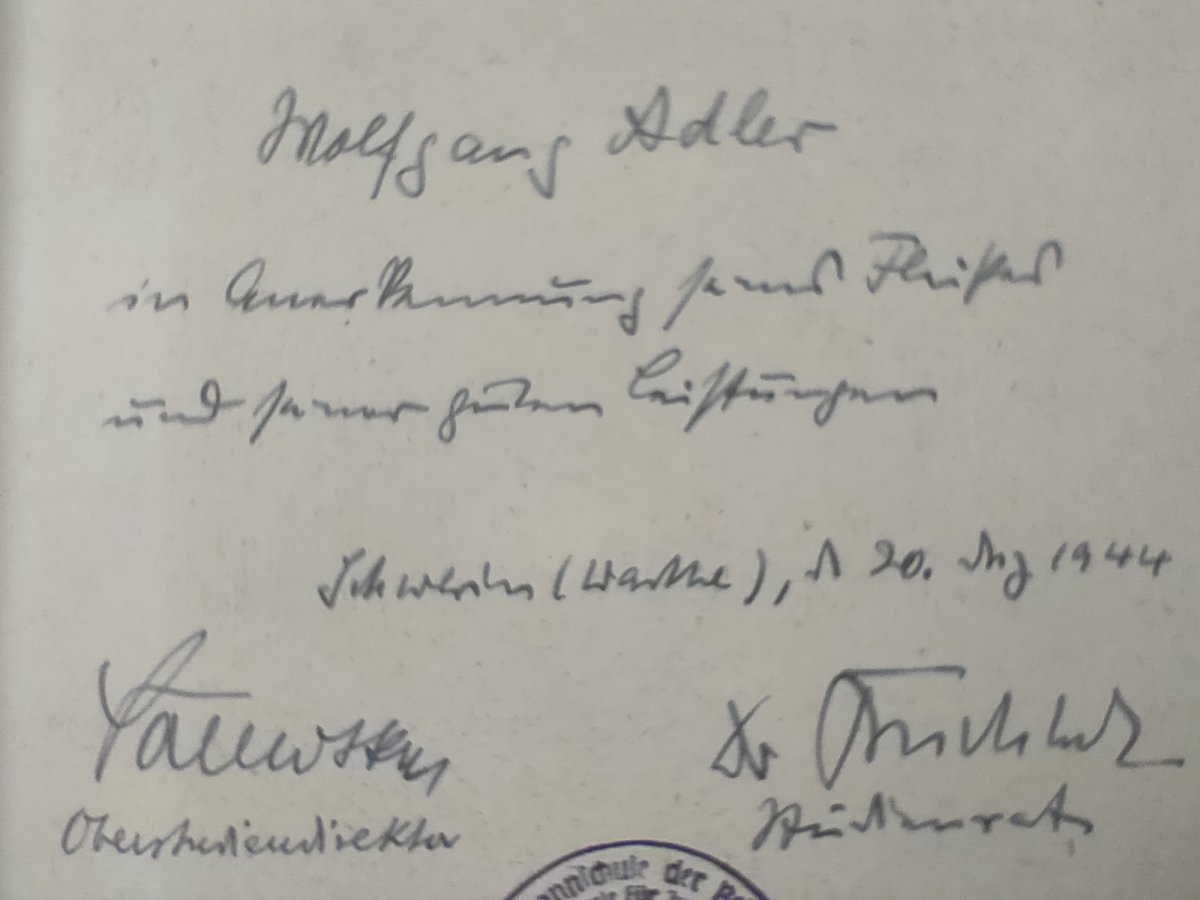 Wolfgang Adler
in Anerkennung seines Fleißes
und seiner guten Leistungen
Schwerin (Warthe), d 20. Aug 1944
Dr
Oberstudiendirektor
Studienrat
der